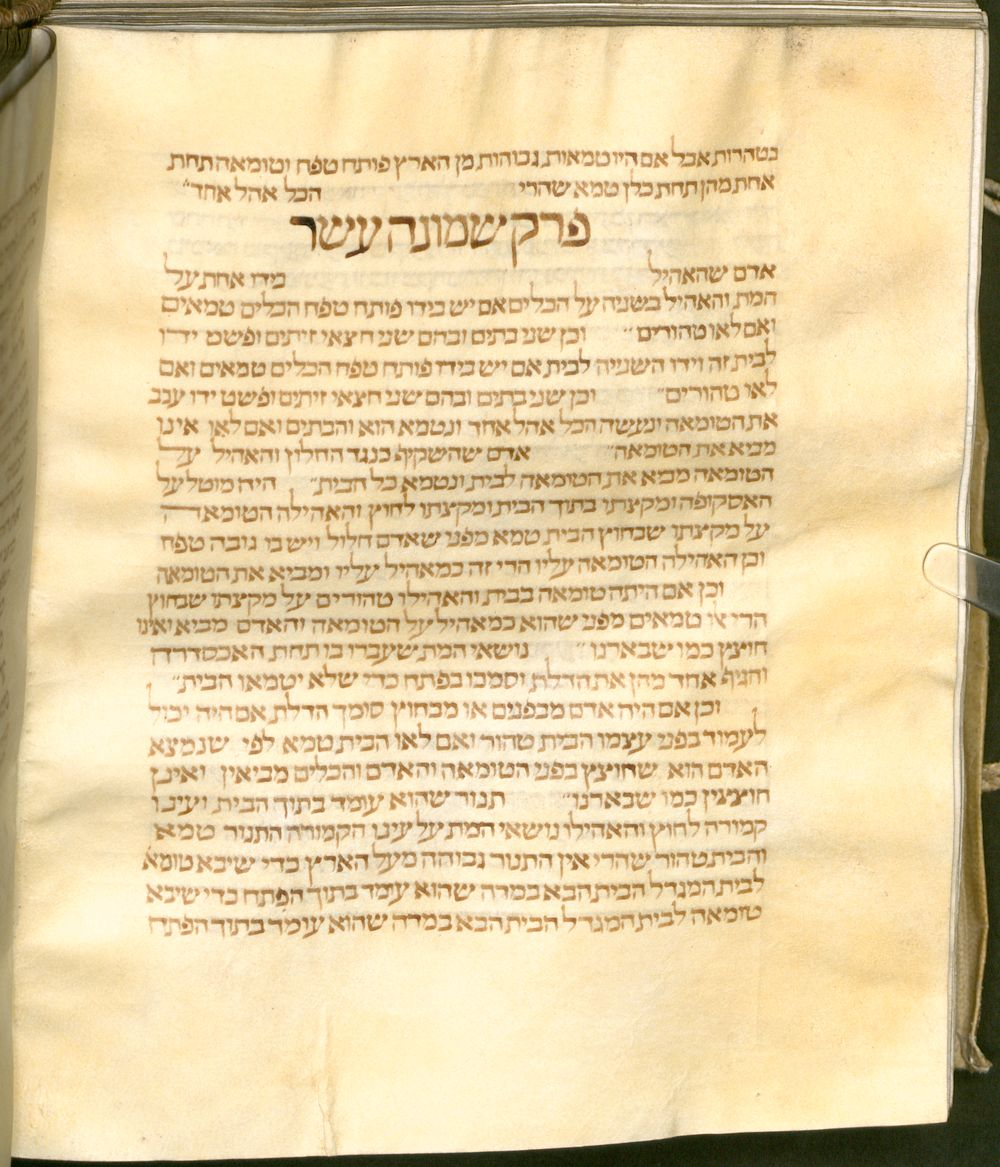 בטהרות אבל אם היו טמאות גבוהות מן הארץ פותח טפח וטומאה תחת
אחת מהן תחת כלן טמא שהרי הכל אהל אחד״
פרק שמונה עשר
אדם שהאהיל בידו אחת על
המת והאהיל בשניה על הכלים אם יש בידו פותח טפח הכלים טמאים
ואם לאו טהורים״ וכן שני בתים ובהם שני חצאי זיתים ופשט ידו
לבית זה וידו השנייה לבית אם יש בידו פותח טפח הכלים טמאים ואם
לאו טהורים״ וכן שני בתים ובהם שני חצאי זיתים ופשט ידו ערב
את הטומאה ונעשה הכל אהל אחד ונטמא הוא והבתים ואם לאו אינו
מביא את הטומאה״ אדם שהשקיף בנגד החלון והאהיל על
הטומאה מביא את הטומאה לבית ונטמא כל הבית״ היה מוטל על
האסקופה ומקצתו בתוך הבית ומקצתו לחוץ והאהילה הטומאה
על מקצתו שבחוץ הבית טמא מפני שאדם חלול ויש בו גובה טפח
וכן האהילה הטומאה עליו הרי זה כמאהיל עליו ומביא את הטומאה
וכן אם היתה טומאה בבית והאהילו טהורים על מקצתו שבחוץ
הרי אלו טמאים מפני שהוא כמאהיל על הטומאה והאדם מביא ואינו
חוצץ כמו שבארנו״ נושאי המת שעברו בו תחת האכסדרה
והגיף אחד מהן את הדלת וסמכו בפתח כדי שלא יטמאו הבית״
וכן אם היה אדם מבפנים או מבחוץ סומך הדלת אם היה יכול
לעמוד בפני עצמו הבית טהור ואם לאו הבית טמא לפי שנמצא
האדם הוא שחוצץ בפני הטומאה והאדם והכלים מביאין ואינן
חוצצין כמו שבארנו״ תנור שהוא עומד בתוך הבית ועינו
קמורה לחוץ והאהילו נושאי המת על עינו הקמורה התנור טמא
והבית טהור שהרי אין התנור גבוהה מעל הארץ כדי שיבא טומא
לבית המגדל הבית הבא במדה שהוא עומד בתוך הפתח כדי שיבא
טומאה לבית המגדל הבית הבא במדה שהוא עומד בתוך הפתח